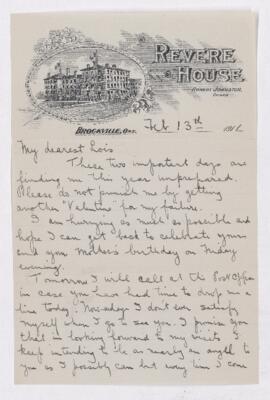 REVERE
HOUSE.
ROBERT JOHNSTON,
BROCKVILLE, ONT.
Feb 13th 191
My dearest Lois
These two important days are
finding me this year unprepared.
Please do not punish me by getting
another "Valentine" for my failure.
I am hurrying as much as possible and
hope I can get back to celebrate your
and your Mother's birthday on Friday
evening.
Tomorrow I will call at the Post Office
in case you have had time to drop me a
line today. Nowadays I don't even satisfy
myself when I go to see you. I promise you
that in looking forward to my visits I
keep intending to be as nearly an angel to
you as I possibly can but every time I come